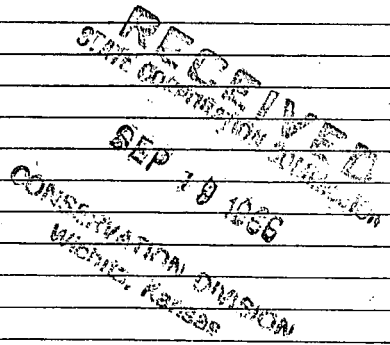 RECEIVED
STATE CORPORATION COMMISSION
SEP 19 1986
CONSERVATION DIVISION
Wichita, Kansas